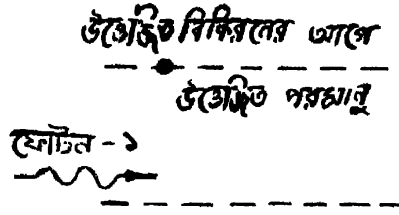 উত্তেজিত বিকিরনের আগে
উত্তেজিত পরমানু
ফোটন - ১